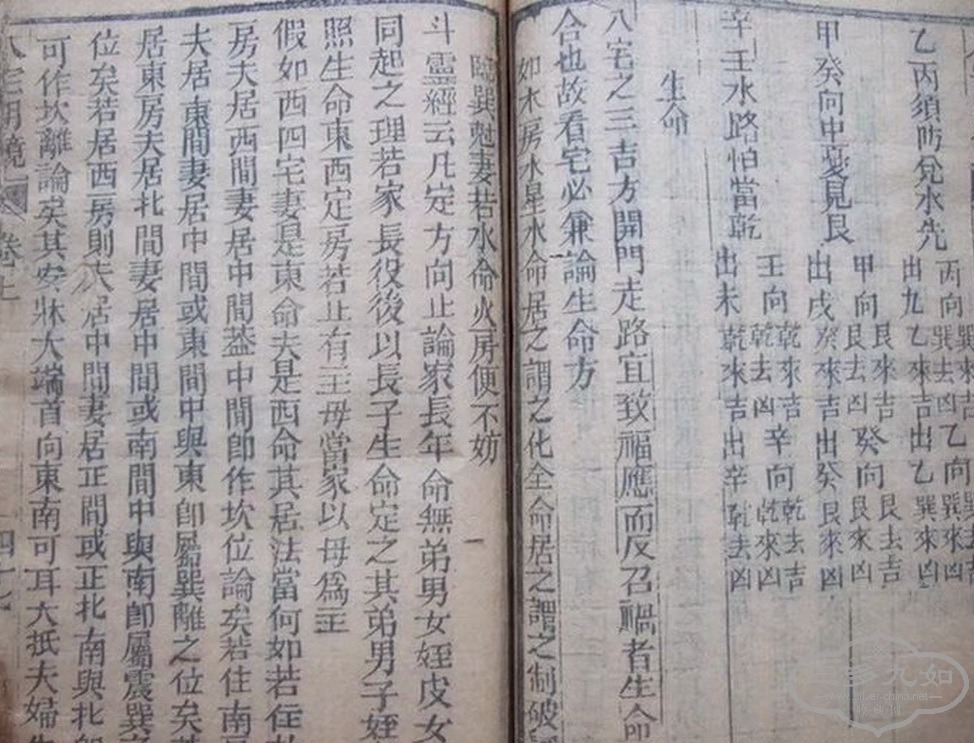 乙丙須防兌水先 丙向巽來吉巽去凶乙向巽去吉
出九乙來吉出乙巽來凶
甲癸向中憂見艮 甲向艮來吉艮去凶癸向艮去吉
出戌癸來吉出癸艮來凶
辛壬水路怕當乾 壬向乾來吉乾去凶辛向乾去吉
出未乾來吉出辛乾去凶
生命
八宅之三吉方開門走路宜致福應而反召禍者生命
合也故看宅必兼論生命方
如木房水星水命居之謂之化全命居之謂之制破
臨巽尅妻若水命火房便不妨
斗靈經云凡定方向止論家長年命無弟男女姪皮女
同起之理若家長役後以長子生命定之其弟男子姪
照生命東西定房若止有主母當家以母爲主
假如西四宅妻是東命夫是西命其居法當何如若住
房夫居西間妻居中間葢中間卽作坎位論矣若住南
夫居東間妻居中間或東間中與東卽屬巽離之位矣
居東房夫居北間妻居中間或南間中與南卽屬震巽
位矣若居西房則夫居中間妻居正間或正北南與北
可作坎離論矣其安牀大端首向東南可耳大抵夫婦
八宅明鏡 卷七 四七